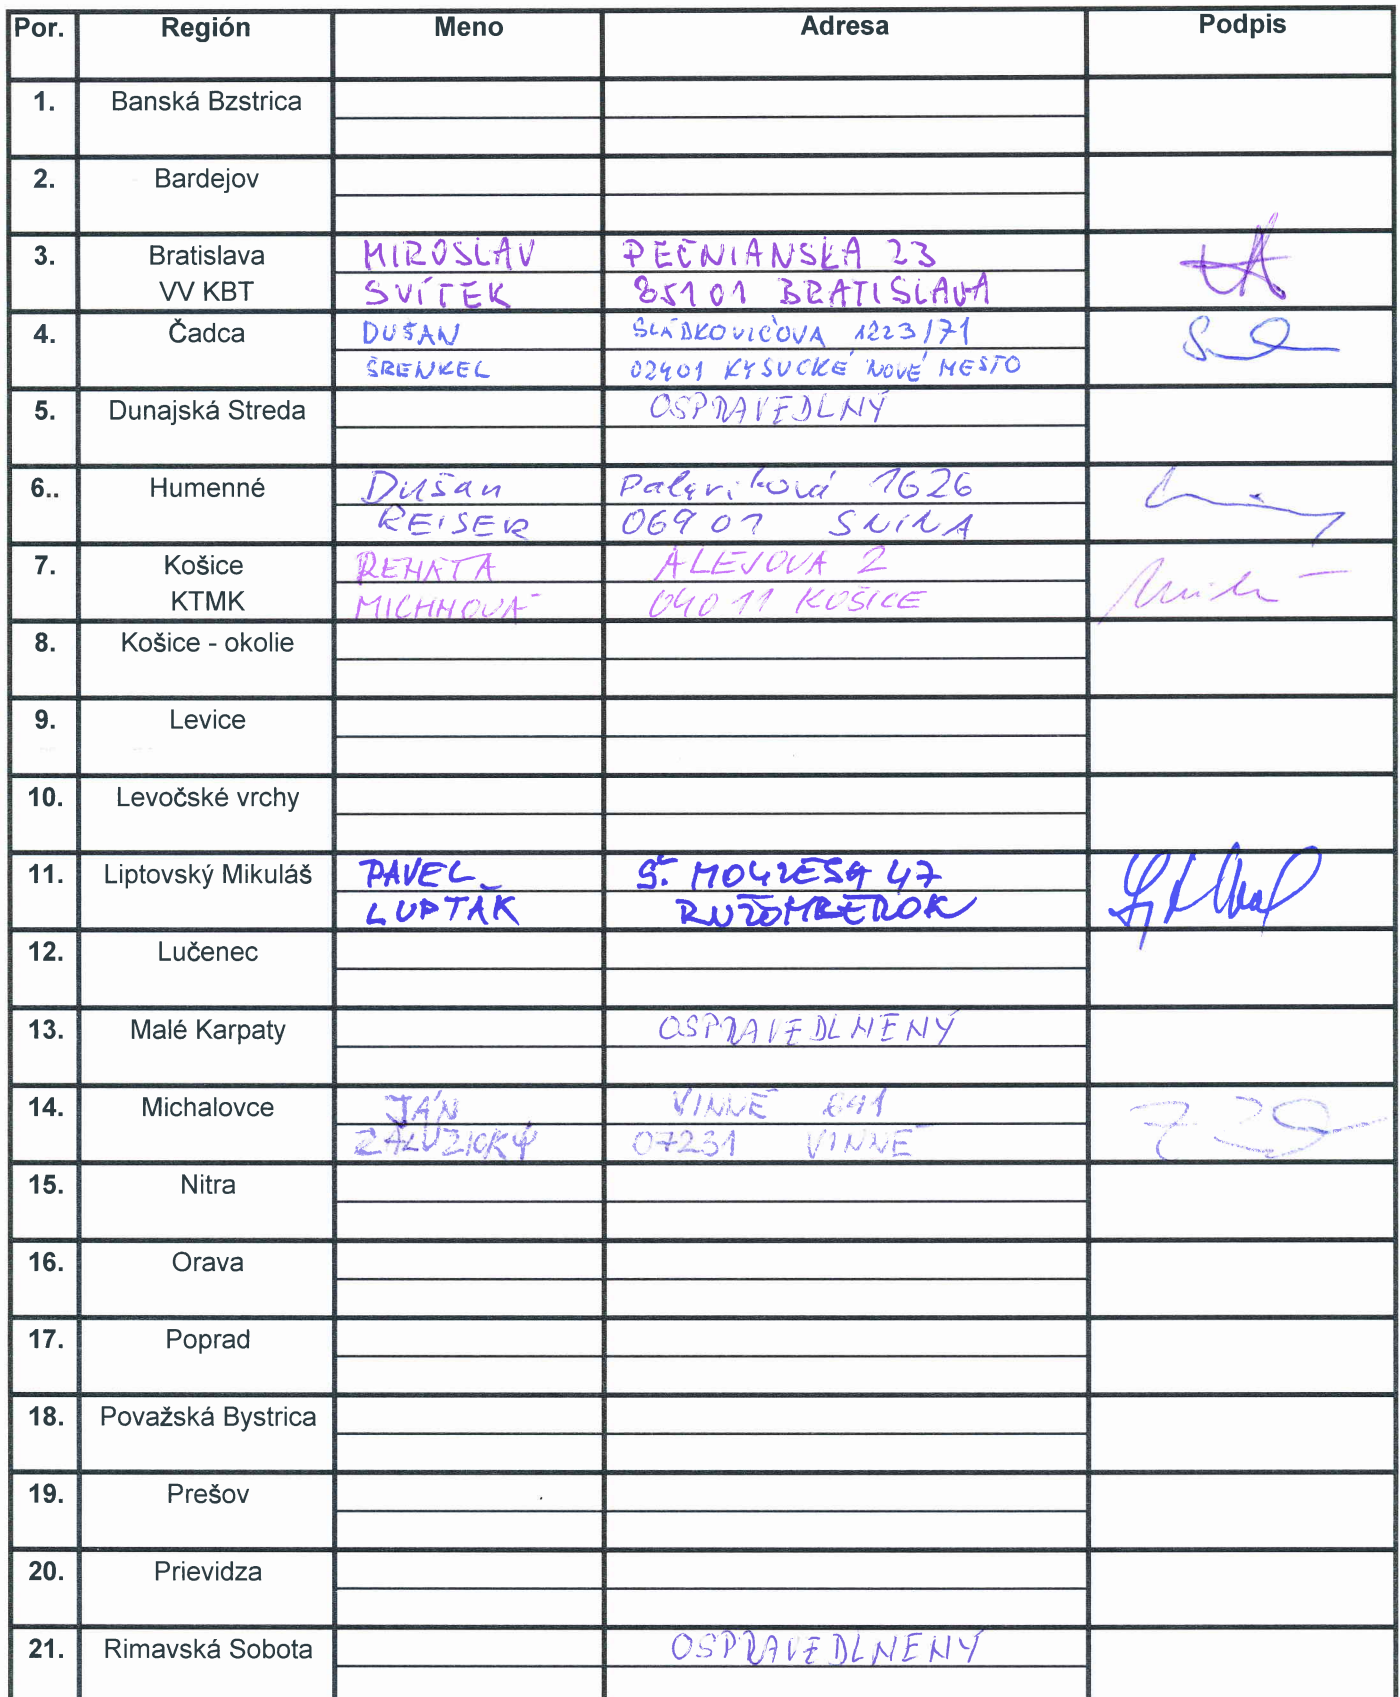 Por. Región Meno Adresa Podpis
1. Banská Bzstrica
2. Bardejov
3. Bratislava MIROSLAV PEČNIANSKA 23
VV KBT SVÍTEK 85101 BRATISLAVA
4. Čadca DUŠAN SLÁDKOVIČOVA 1223/71
ŠRENKEL 02401 KYSUCKÉ NOVÉ MESTO
5. Dunajská Streda OSPRAVEDLNÝ
6.. Humenné Dušan 1626
REISER 06901 SNINA
7. Košice RENÁTA ALEJOVA 2
KTMK MICHNOVÁ 04011 KOŠICE
8. Košice - okolie
9. Levice
10. Levočské vrchy
11. Liptovský Mikuláš PAVEL Š. MOYZESA 47
LUPTÁK RUŽOMBEROK
12. Lučenec
13. Malé Karpaty OSPRAVEDLNENÝ
14. Michalovce JÁN VINNÉ 641
ZÁLUŽICKÝ 07231 VINNÉ
15. Nitra
16. Orava
17. Poprad
18. Považská Bystrica
19. Prešov
20. Prievidza
21. Rimavská Sobota OSPRAVEDLNENÝ